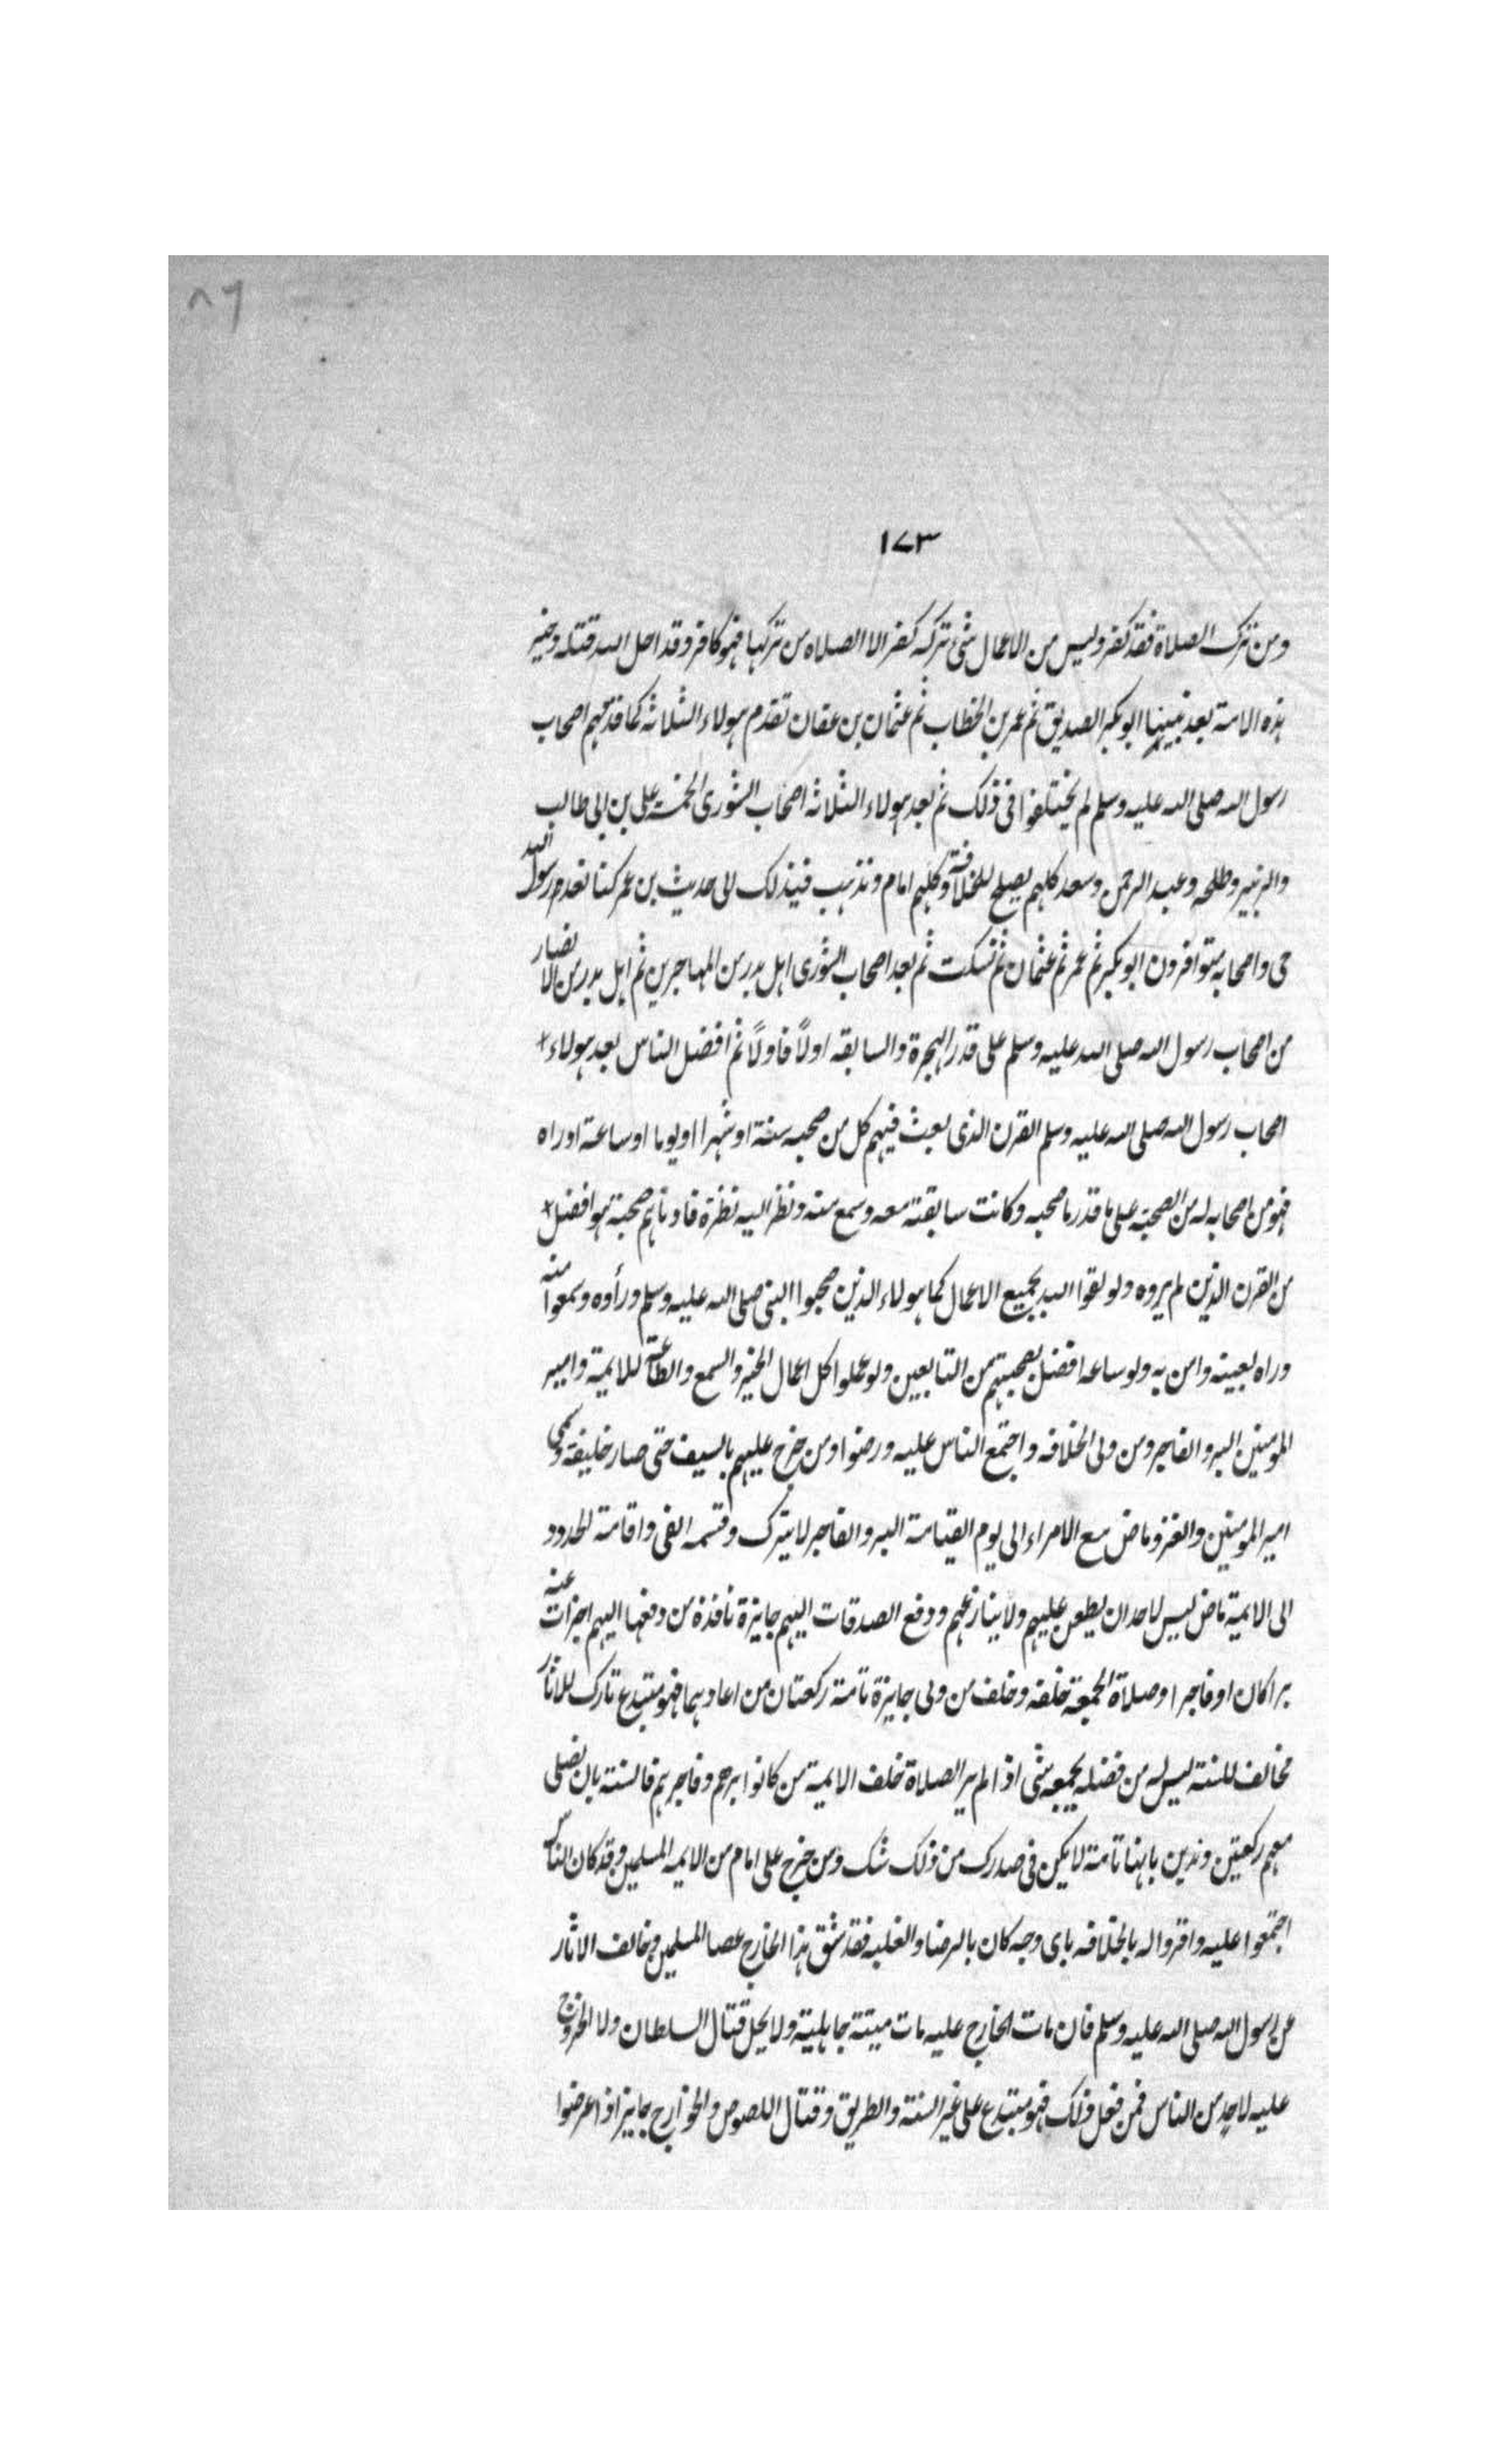 ٨٦
١٧٣
ومن ترك الصلاة فقد كفر وليس من الاعمال شئ تركه كفر الا الصلاه من تركها فهو كافر وقد احل الله قتله وخير
هذه الامة بعد نبينا ابو بكر الصديق ثم عمر بن الخطاب ثم عثمان بن عفان تقدم هولاء الثلاثه كما قدمهم اصحاب
رسول الله صلى الله عليه وسلم لم يختلفوا فى ذلك ثم بعد هولاء الثلاثه اصحاب الشورى الخمسة على بن ابى طالب
والزبير وطلحه وعبد الرحمن وسعد كلهم يصلح للخلافة وكلهم امام ونذهب فيذلك الى حديث بن عمر كنا نعد ورسول الله
حى واصحابه متوافرون ابو بكر ثم عمر ثم عثمان ثم نسكت ثم بعد اصحاب الشورى اهل بدر من المهاجرين ثم اهل بدر من الانصار
من اصحاب رسول الله صلى الله عليه وسلم على قدر الهجرة والسابقه اولًا فاولًا ثم افضل الناس بعد هولاء
اصحاب رسول الله صلى الله عليه وسلم القرن الذى بعث فيهم كل من صحبه سنة او شهرا او يوما او ساعة او راه
فهو من اصحابه له من الصحبة على ما قدر ما صحبه وكانت سابقته معه وسمع منه ونظر اليه نظرة فادناهم صحبة هو افضل
من القرن الذين لم يروه ولو لقوا الله بجميع الاعمال كما هولاء الذين صحبوا النبى صلى الله عليه وسلم ورأوه وسمعوا منه
وراه بعينه وامن به ولو ساعه افضل بصحبتهم من التابعين ولو عملوا كل اعمال الخير والسمع والطاعة للايمة وامير
المومنين البر والفاجر ومن ولى الخلافه واجتمع الناس عليه ورضوا ومن خرج عليهم بالسيف حتى صار خليفة وسمى
امير المومنين والغزو ماض مع الامراء الى يوم القيامة البر والفاجر لا يترك وقسمه الفى واقامة الحدود
الى الايمة ماض ليس لاحد ان يطعن عليهم ولا ينازعهم ودفع الصدقات اليهم جايزة نافذة من دفعها اليهم اجزات عنه
برا كان او فاجرا وصلاة الجمعة خلفه وخلف من ولى جايزة تامة ركعتان من اعادهما فهو مبتدع تارك للاثار
مخالف للسنة ليس له من فضله بجمعه شئ اذا لم ير الصلاة خلف الايمة من كانوا برهم وفاجرهم فالسنة بان نصلى
معهم ركعتين وندين بانها تامة لا يكن فى صدرك من ذلك شك ومن خرج على امام من الايمه المسلمين وقد كان الناس
اجتمعوا عليه واقروا له بالخلافه باى وجه كان بالرضا والغلبه فقد شق هذا الخارج عصا المسلمين وخالف الاثار
عن رسول الله صلى الله عليه وسلم فان مات الخارج عليه مات ميتة جاهلية ولا يحل قتال السلطان ولا الخروج
عليه لاحد من الناس فمن فعل ذلك فهو مبتدع على غير السنة والطريق وقتال اللصوص والخوارج جايز اذا عرضوا